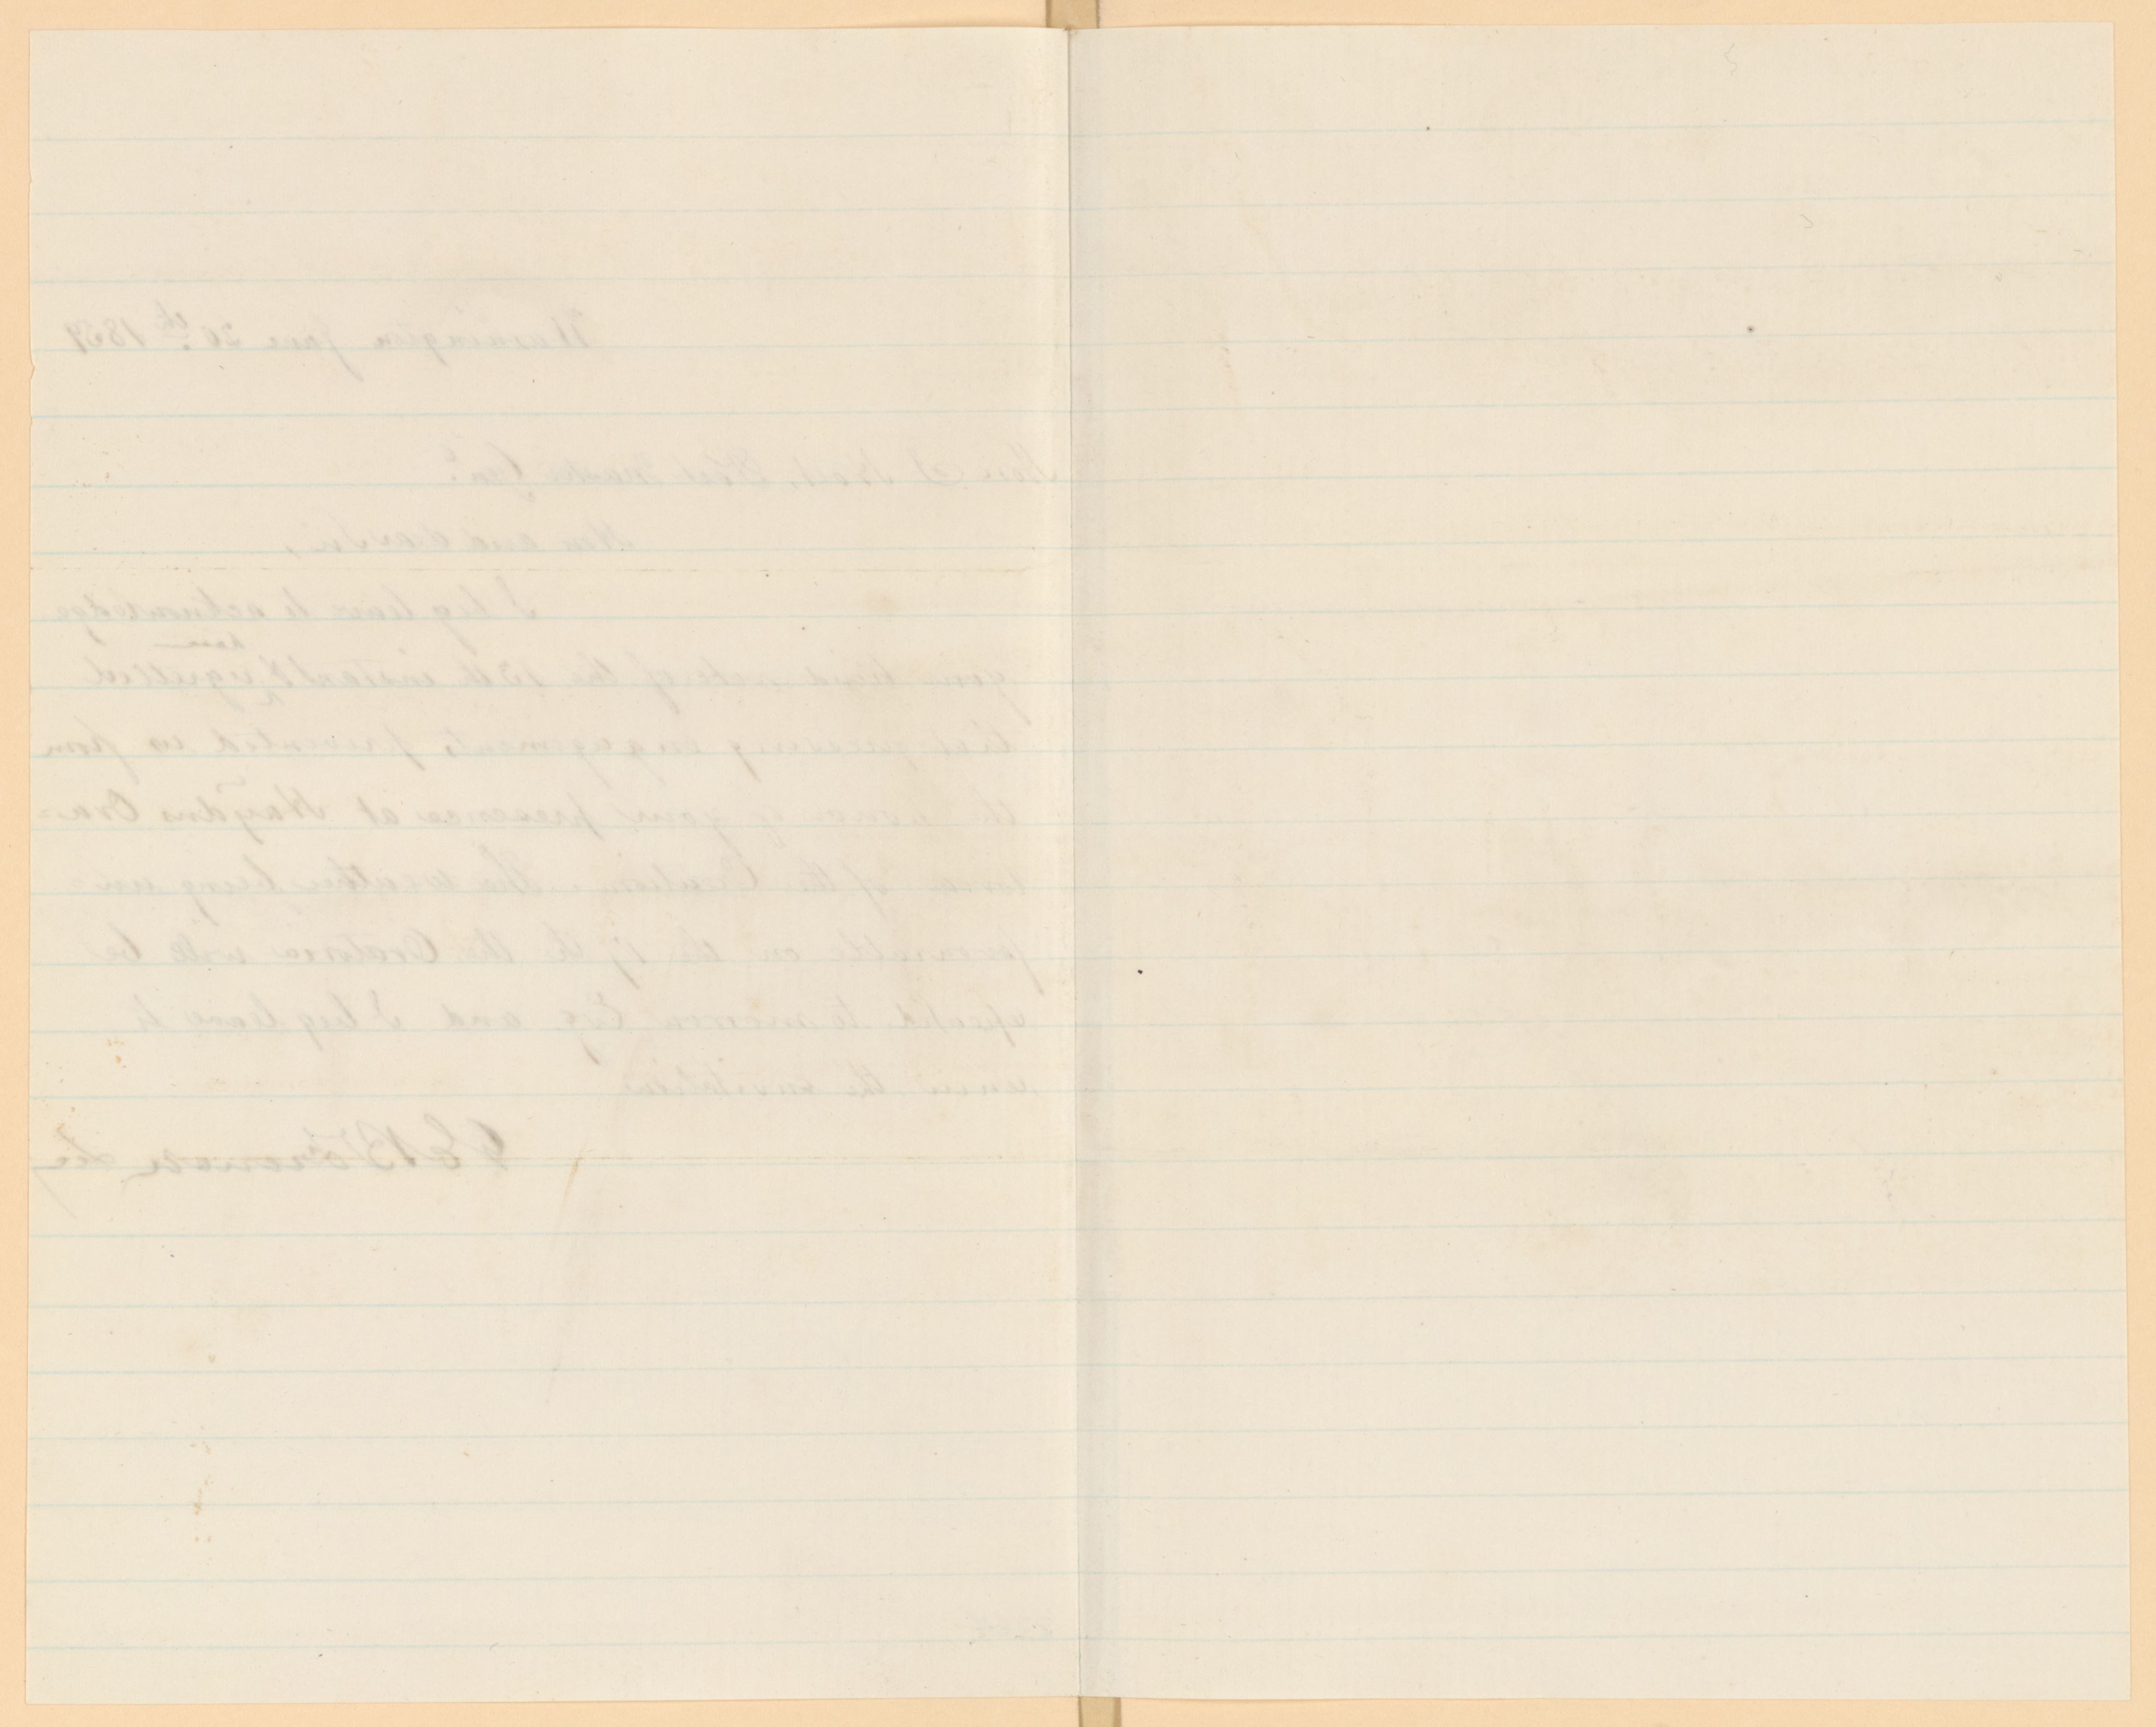 Washington June 20th 1859
Hon J. Holt, Post master Genl
Hon and dear Sir,
I beg leave to acknowledge
your kind note of the 13th instant & have regretted
that pressing engagements prevented us from
the honor of your presence at Haydns Ora-
torio of the Creation. The weather being un-
favourable on the the Oratorio will be
repeated tomorrow Evg and I beg leave to
renew the invitation